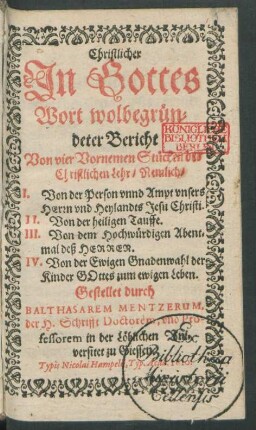 Christlicher
In Gottes
Wort wolbegrün-
deter Bericht
Von vier Vornemen Stücken der
Christlichen Lehr/ Nemlich/
I. Von der Person vnnd Ampt vnsers
HErrn vnd Heylandes Jesu Christi.
II. Von der heiligen Tauffe.
III. Von dem Hochwürdigen Abent-
mal deß HERREN.
IV. Von der Ewigen Gnadenwahl der
Kinder GOttes zum ewigen Leben.
Gestellet durch
BALTHASAREM MENTZERUM,
der H. Schrifft Doctorem, vnd Pro-
fessorem in der löblichen Vni-
versitet zu Giessen.
Typis Nicolai Hampelii, Typ. Acad.
KÖNIGL.
BIBLIOTHEK
BERLIN
Ex
Bibliotheca